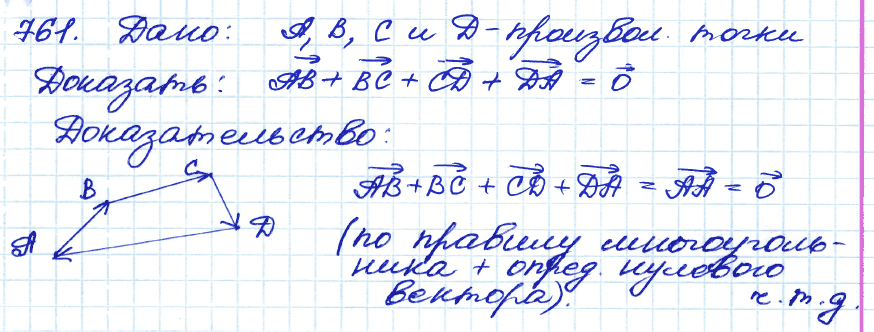 761. Дано: A, B, C и D - произвол. точки
Доказать: AB⃗ + BC⃗ + CD⃗ + DA⃗ = 0⃗
Доказательство:
C
B
A
D
AB⃗ + BC⃗ + CD⃗ + DA⃗ = AA⃗ = 0⃗
(по правилу многоуголь-
ника + опред. нулевого
вектора).
ч.т.д.